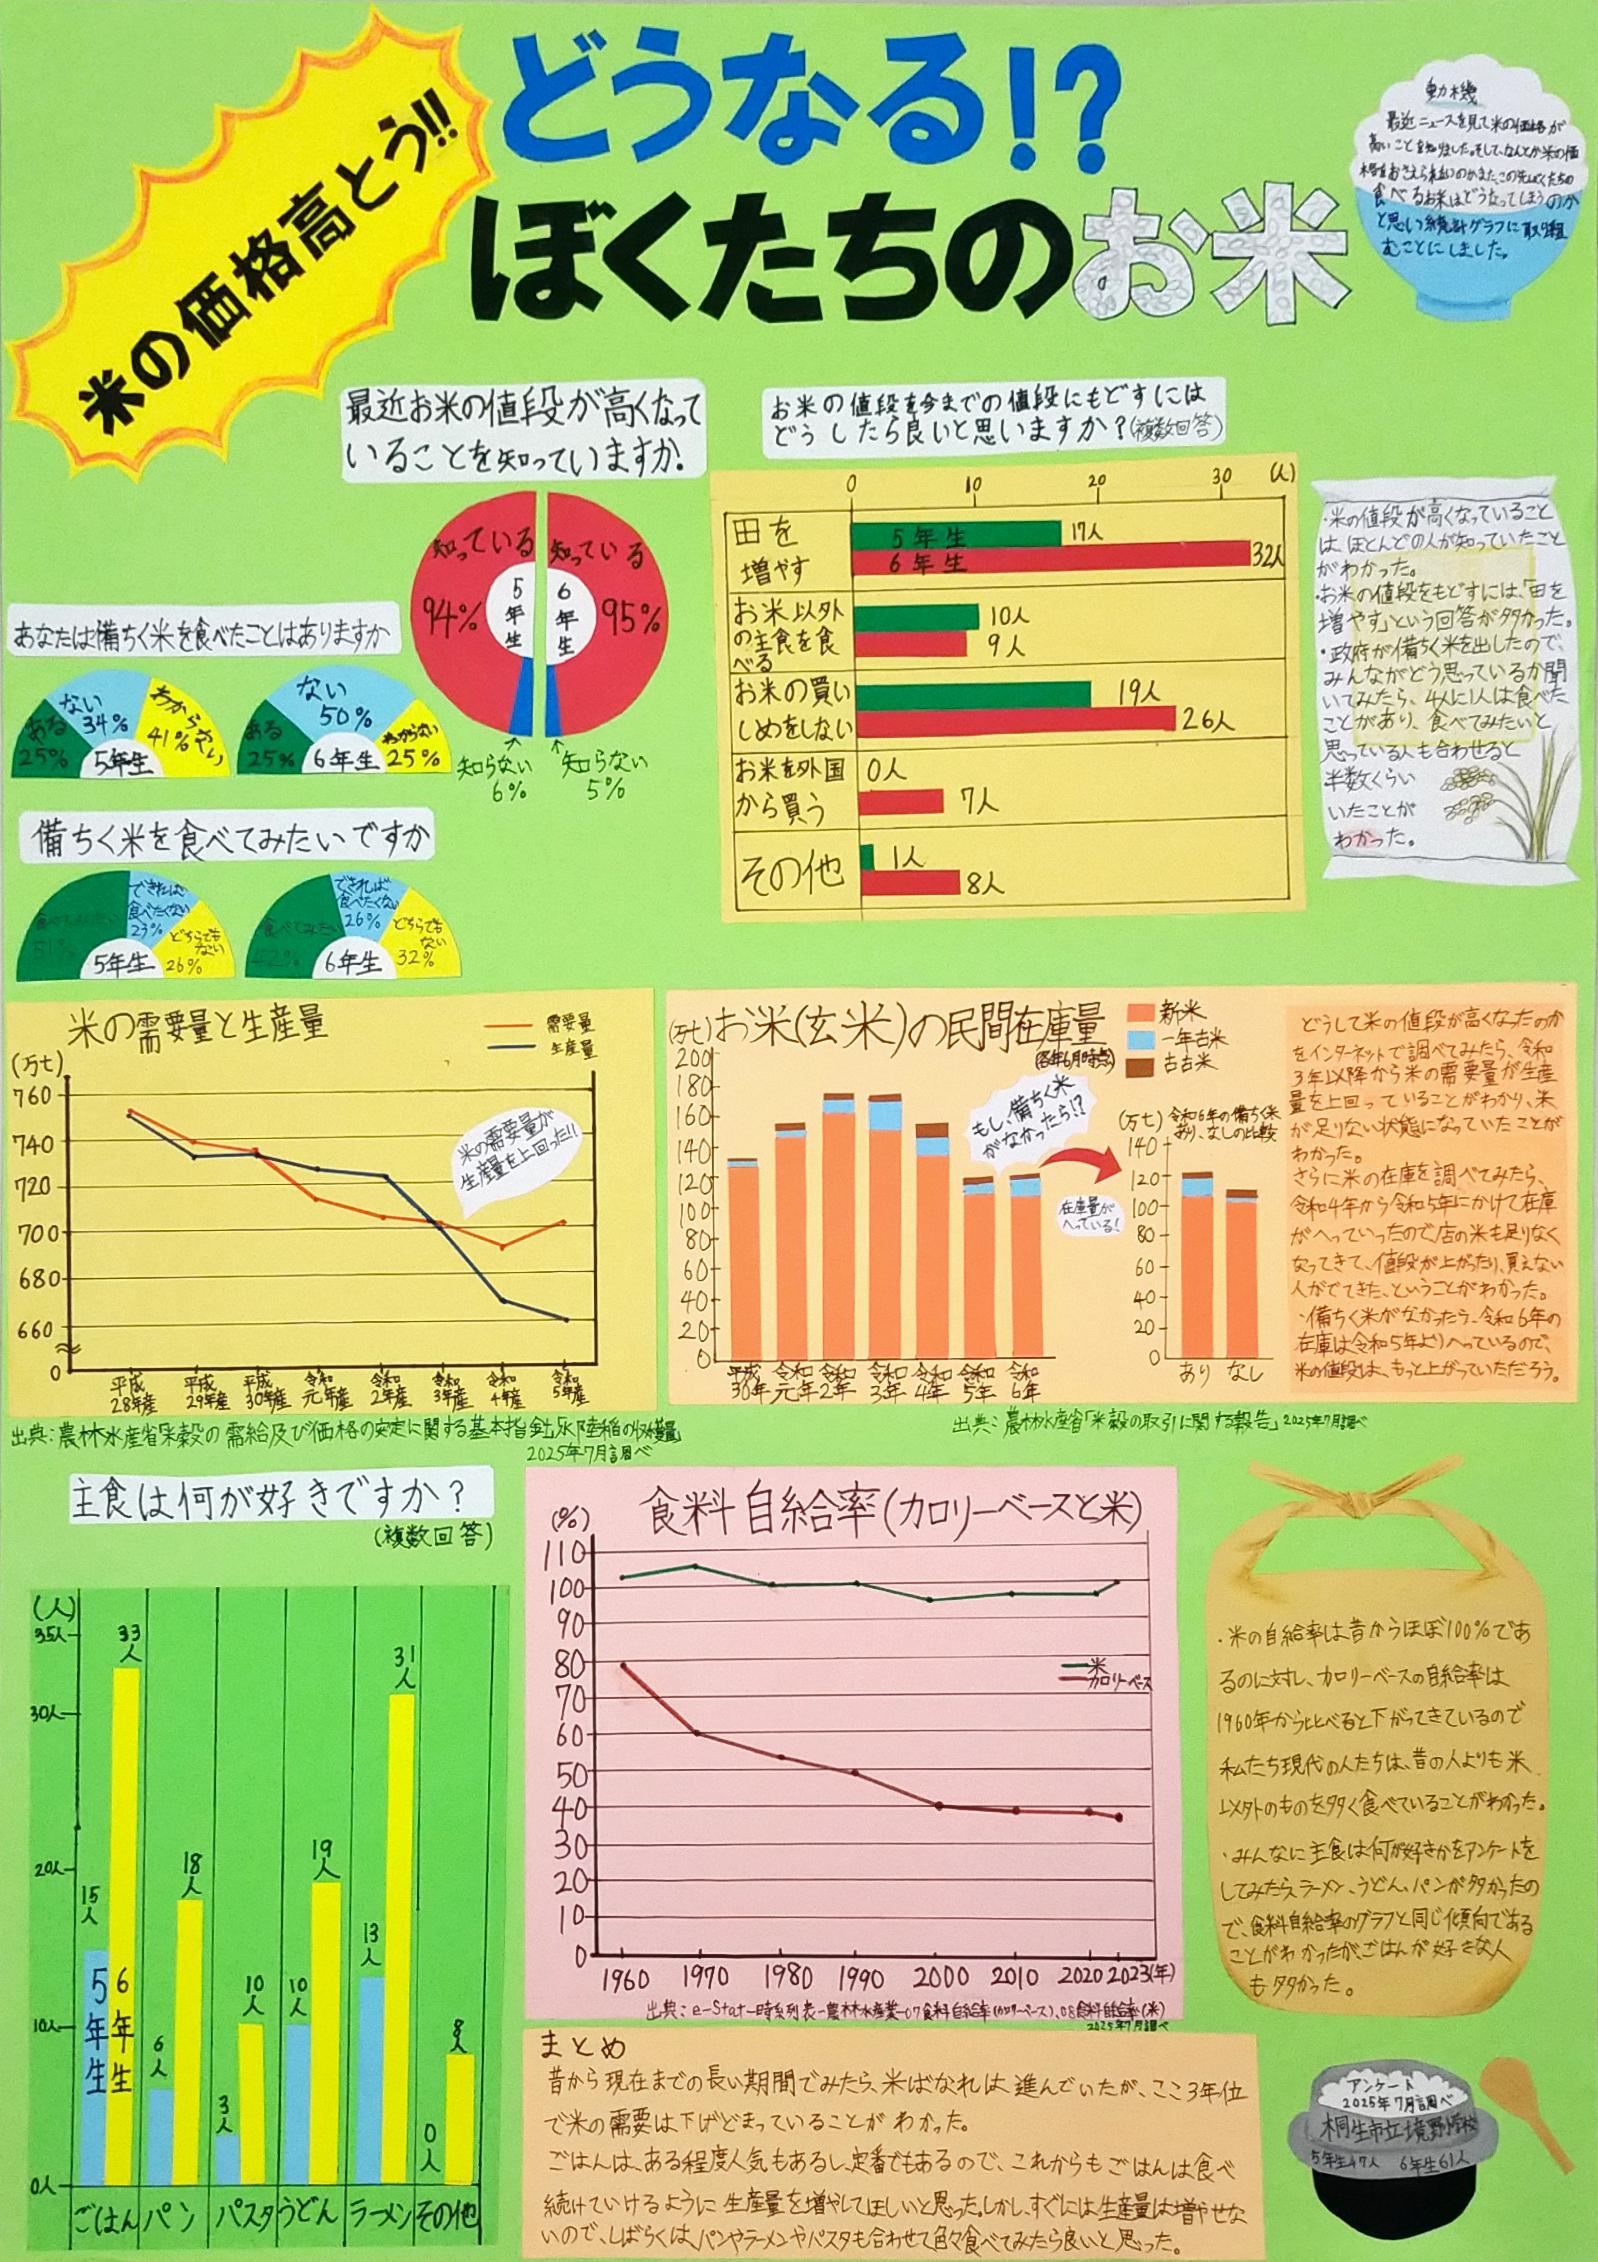 米の価格高とう!!
どうなる!?
ぼくたちのお米
動機
最近ニュースを見て米の価格が
高いことを知りました。そして、なんとか米の価
格をおさえられないのかまた、この先ぼくたちの
食べるお米はどうなってしまうのか
と思い統計グラフに取り組
むことにしました。
最近お米の値段が高くなって
いることを知っていますか。
知っている
94%
5年生
知らない
6%
知っている
95%
6年生
知らない
5%
お米の値段を今までの値段にもどすには
どうしたら良いと思いますか?(複数回答)
0 10 20 30 (人)
田を
増やす
5年生 17人
6年生 32人
お米以外
の主食を食
べる
10人
9人
お米の買い
しめをしない
19人
26人
お米を外国
から買う
0人
7人
その他
1人
8人
・米の値段が高くなっていること
は、ほとんどの人が知っていたこと
がわかった。
・お米の値段をもどすには、「田を
増やす」という回答が多かった。
・政府が備ちく米を出したので、
みんながどう思っているか聞
いてみたら、4人に1人は食べた
ことがあり、食べてみたいと
思っている人も合わせると
半数くらい
いたことが
わかった。
あなたは備ちく米を食べたことはありますか
ある
25%
ない
34%
わからない
41%
5年生
ある
25%
ない
50%
わからない
25%
6年生
備ちく米を食べてみたいですか
食べてみたい
51%
できれば
食べたくない
23%
どちらでも
ない
26%
5年生
食べてみたい
42%
できれば
食べたくない
26%
どちらでも
ない
32%
6年生
米の需要量と生産量
需要量
生産量
(万t)
760
740
720
700
680
660
0
米の需要量が
生産量を上回った!!
平成28年産
平成29年産
平成30年産
令和元年産
令和2年産
令和3年産
令和4年産
令和5年産
出典:農林水産省「米穀の需給及び価格の安定に関する基本指針」「水陸稲の収穫量」
2025年7月調べ
お米(玄米)の民間在庫量
(各年6月時点)
新米
一年古米
古古米
(万t)
200
180
160
140
120
100
80
60
40
20
0
平成30年
令和元年
令和2年
令和3年
令和4年
令和5年
令和6年
もし、備ちく米
がなかったら!?
在庫量が
へっている!
(万t)
令和6年の備ちく米
あり、なしの比較
140
120
100
80
60
40
20
0
あり なし
出典:農林水産省「米穀の取引に関する報告」2025年7月調べ
どうして米の値段が高くなったのか
をインターネットで調べてみたら、令和
3年以降から米の需要量が生産
量を上回っていることがわかり、米
が足りない状態になっていたことが
わかった。
さらに米の在庫を調べてみたら、
令和4年から令和5年にかけて在庫
がへっていったので店の米も足りなく
なってきて、値段が上がったり、買えない
人がでてきた、ということがわかった。
・備ちく米がなかったら、令和6年の
在庫は令和5年よりへっているので、
米の値段は、もっと上がっていただろう。
主食は何が好きですか?
(複数回答)
(人)
35人
30人
20人
10人
0人
5年生
6年生
15人 33人
6人 18人
3人 10人
10人 19人
13人 31人
0人 8人
ごはん パン パスタ うどん ラーメン その他
食料自給率(カロリーベースと米)
(%)
110
100
90
80
70
60
50
40
30
20
10
0
米
カロリーベース
1960 1970 1980 1990 2000 2010 2020 2023(年)
出典:e-Stat-時系列表-農林水産業-07食料自給率(カロリーベース)、08食料自給率(米)
2025年7月調べ
・米の自給率は昔からほぼ100%であ
るのに対し、カロリーベースの自給率は
1960年から比べると下がってきているので
私たち現代の人たちは、昔の人よりも米
以外のものを多く食べていることがわかった。
・みんなに主食は何が好きかをアンケートを
してみたら、ラーメン、うどん、パンが多かったの
で、食料自給率のグラフと同じ傾向である
ことがわかったが、ごはんが好きな人
も多かった。
まとめ
昔から現在までの長い期間でみたら、米ばなれは進んでいたが、ここ3年位
で米の需要は下げどまっていることがわかった。
ごはんは、ある程度人気もあるし、定番でもあるので、これからもごはんは食べ
続けていけるように生産量を増やしてほしいと思った。しかし、すぐには生産量は増やせな
いので、しばらくは、パンやラーメンやパスタも合わせて色々食べてみたら良いと思った。
アンケート
2025年7月調べ
桐生市立境野小学校
5年生47人 6年生61人